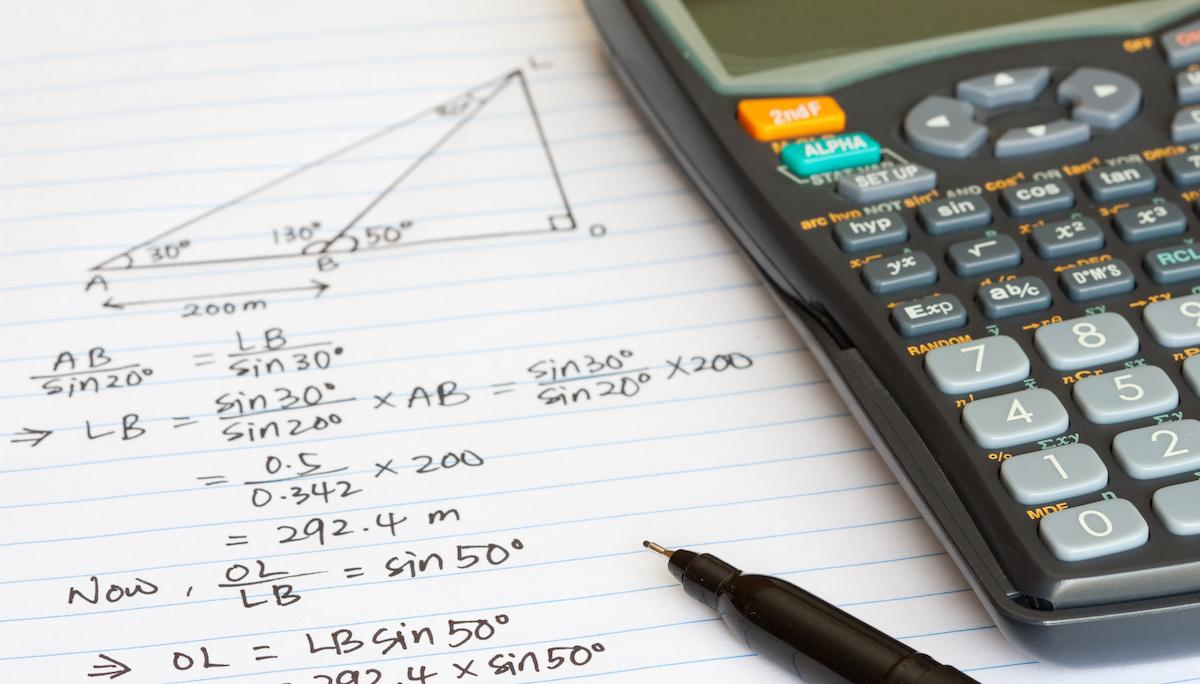 L
20°
30°
130°
50°
A
B
O
200m
AB/sin20° = LB/sin30°
⇒ LB = sin30°/sin20° × AB = sin30°/sin20° × 200
= 0.5/0.342 × 200
= 292.4 m
Now, OL/LB = sin50°
⇒ OL = LB sin50°
292.4 × sin50°
OFF
2ndF
ALPHA
STAT VAR
SET UP
arc hyp NOT sin⁻¹ AND cos⁻¹ OR tan⁻¹ XOR DRG▸
hyp sin cos tan
yˣ √ x² x³
Exp ab/c D°M'S RCL
RANDOM →rθ →xy
7 8 9
n! nCr
4 5
% Σxy
1 2
MDF
0